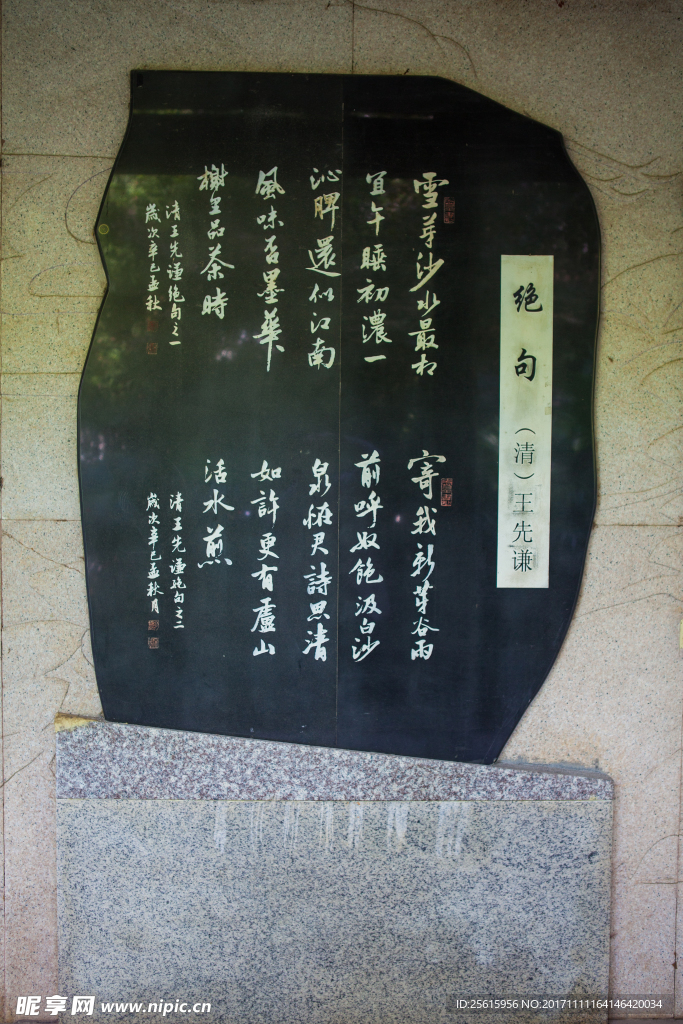 绝句（清）王先谦
雪芽沙水最相
宜午睡初濃一
沁脾還似江南
風味否墨華
榭里品茶時
清王先谦绝句之一
歲次辛巳孟秋
寄我新芽谷雨
前呼奴飽汲白沙
泉恠君詩思清
如許更有廬山
活水煎
清王先谦绝句之二
歲次辛巳孟秋月
昵享网 www.nipic.cn
ID:25615956 NO:20171111164146420034